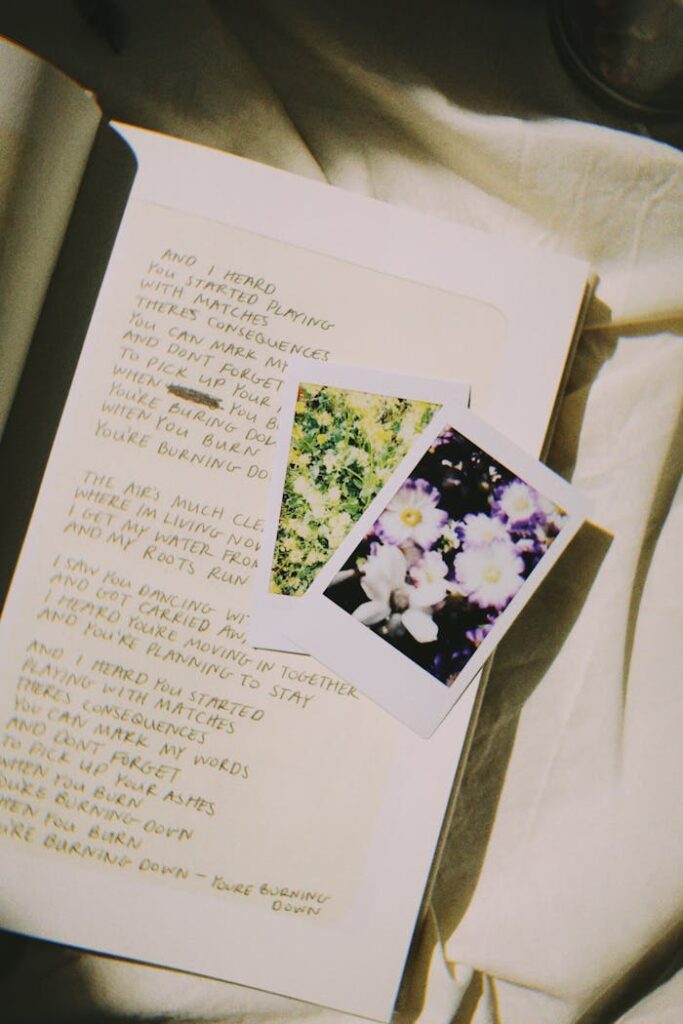 AND I HEARD
YOU STARTED PLAYING
WITH MATCHES
THERES CONSEQUENCES
YOU CAN MARK MY
AND DONT FORGET
TO PICK UP YOUR
WHEN YOU B
YOU'RE BURING DOW
WHEN YOU BURN
YOU'RE BURNING DO
THE AIR'S MUCH CLE
WHERE IM LIVING NOW
I GET MY WATER FROM
AND MY ROOTS RUN
I SAW YOU DANCING WI
AND GOT CARRIED AW
I HEARD YOU'RE MOVING IN TOGETHER
AND YOU'RE PLANNING TO STAY
AND I HEARD YOU STARTED
PLAYING WITH MATCHES
THERES CONSEQUENCES
YOU CAN MARK MY WORDS
AND DONT FORGET
TO PICK UP YOUR ASHES
WHEN YOU BURN
YOURE BURNING DOWN
WHEN YOU BURN
URE BURNING DOWN - YOURE BURNING
DOWN